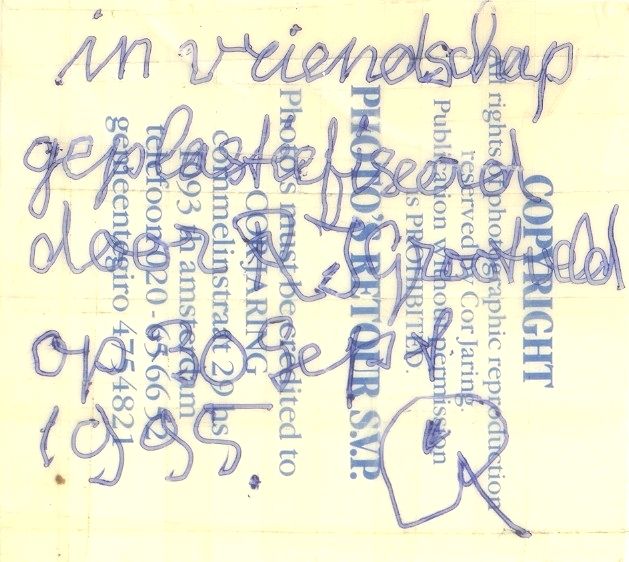 in vriendschap
geplastiefseerd
door R.J Grootveld
op sept
1995.
COPYRIGHT
All rights of photographic reproduction
reserved by Cor Jaring
Publication without permission
is PROHIBITED.
PHOTO'S RETOUR S.V.P.
Photo's must be credited to
CORJARING
commelinstraat 29 hs
1093 amsterdam
telefoon 020 -
gemeentegiro 4754821